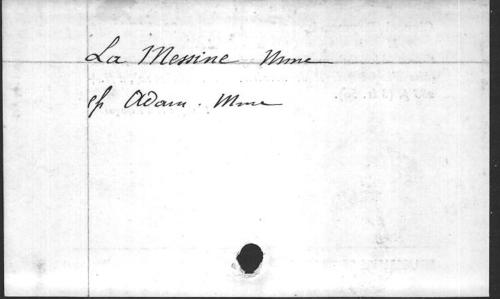 La Messine Mme
cf Adam. Mme